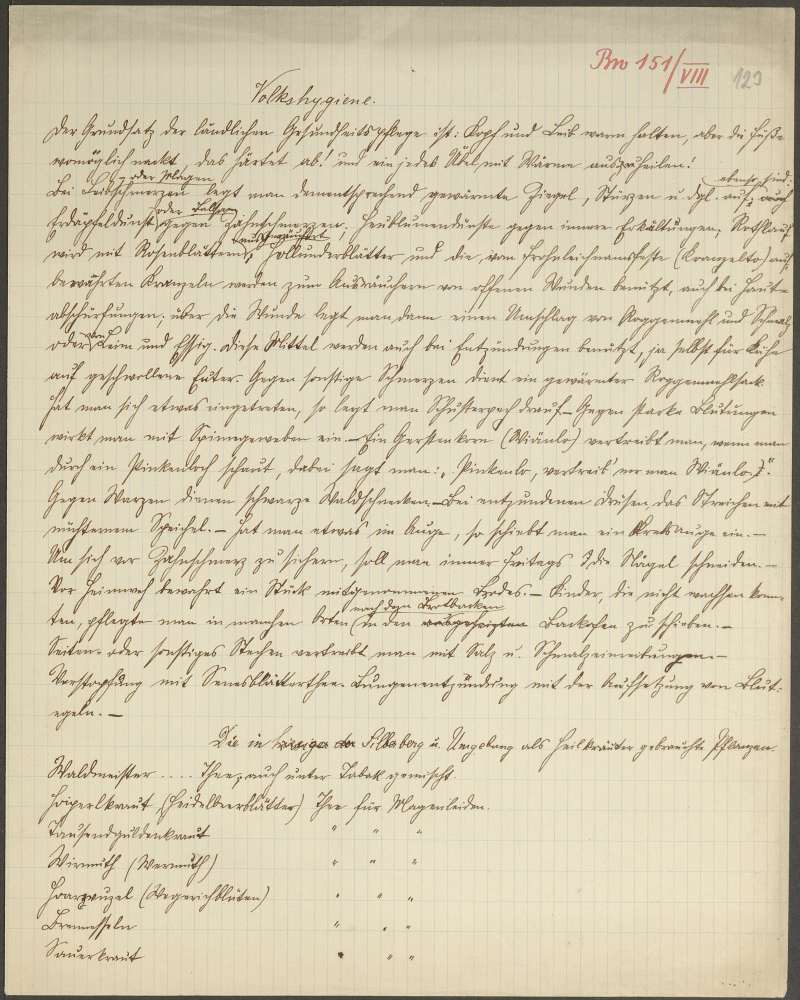 Bw 151/VIII 123
Volkshygiene.
Der Grundsatz der ländlichen Gesundheitspflege ist: Kopf und Leib warm halten, aber die Füße
womöglich nackt, das härtet ab! und ein jedes Übel mit Wärme auszuheilen!
oder Magen ebenso sind:
Bei Leibschmerzen legt man dementsprechend gewärmte Ziegel, Stürzen u. dgl. auf; auch
oder
Erdäpfeldunst gegen Zahnschmerzen; Heublumendünste gegen innere Erkältungen; Rothlauf
wird mit Rosenblättern, Hollunderblätter und die vom Frohnleichnamsfeste (Kranzeltag) auf-
bewahrten Kranzeln werden zum Ausräuchern von offenen Wunden benützt, auch bei Haut-
abschürfungen; über die Wunde legt man dann einen Umschlag von Roggenmehl und Schmalz
oder von Leim und Essig. Diese Mittel werden auch bei Entzündungen benützt, ja selbst für Kühe
auf geschwollene Euter. Gegen sonstige Schmerzen dient ein gewärmter Roggenmehlsack
Hat man sich etwas eingetreten, so legt man Schusterpech drauf. – Gegen starke Blutungen
wirkt man mit Spinngeweben ein. – Ein Gerstenkorn (Wiänlo) vertreibt man, wenn man
durch ein Pinkenloch schaut, dabei sagt man: „Pinkenlo, vertreib' mr man Wiänlo!".
Gegen Warzen dienen schwarze Waldschnecken. – Bei entzundenen Drüsen das Streichen mit
nüchternem Speichel. – Hat man etwas im Auge, so schiebt man ein Krebsauge ein. –
Um sich vor Zahnschmerz zu sichern, soll man immer Freitags die Nägel schneiden. –
Vor Heimweh bewahrt ein Stück mitgenommenen Brodes. – Kinder, die nicht wachsen konn-
nach dem Brotbacken
ten, pflegte man in manchen Orten in den ausgeheizten Backofen zu schieben. –
Seiten- oder sonstiges Stechen vertreibt man mit Salz u. Schmalzeinreibungen. –
Verstopfung mit Senesblätterthee. Lungenentzündung mit der Aufsetzung von Blut-
egeln. –
Die in Silberberg u. Umgebung als Heilkräuter gebrauchte Pflanzen.
Waldmeister .... Thee, auch unter Tabak gemischt.
Hoiperlkraut (Heidelbeerblätter) Thee für Magenleiden.
Tausendguldenkraut " " "
Wirmuth (Wermuth) " " "
Hoarwuzel (Wegerichblüten) " " "
Brennesseln " " "
Sauerkraut " " "